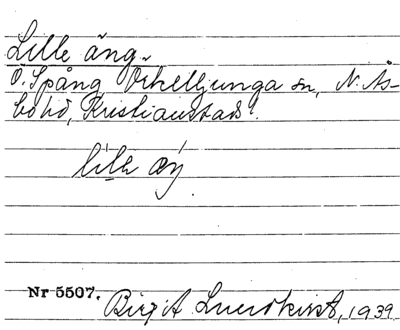 Lille äng.
Ö. Spång Örkelljunga sn, N. Ås-
bo hd, Kristianstads l.
lilə æŋ
Nr 5507. Birgit Lundkvist, 1939